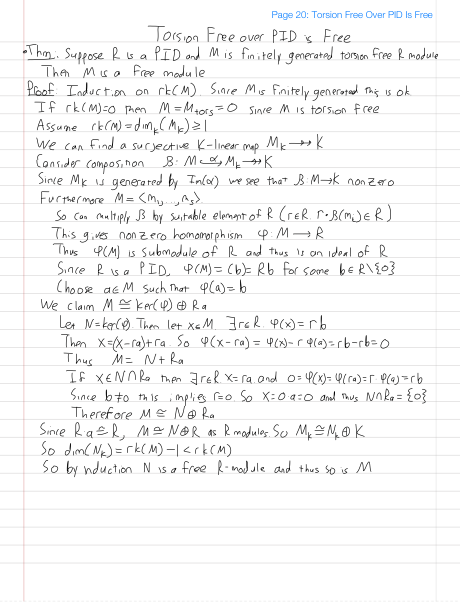 Page 20: Torsion Free Over PID Is Free
Torsion Free over PID is Free
• Thm: Suppose R is a PID and M is finitely generated torsion free R module
Then M is a free module
Proof: Induction on rk(M). Since M is finitely generated this is ok
If rk(M)=0 then M=M_tors=0 since M is torsion free
Assume rk(M)=dim_K(M_K)≥1
We can find a surjective K-linear map M_K ↠ K
Consider composition β: M →^α M_K ↠ K
Since M_K is generated by Im(α) we see that β: M→K nonzero
Furthermore M=<m_1,...,m_s>
So can multiply β by suitable element of R (r∈R r·β(m_i)∈R)
This gives nonzero homomorphism φ: M→R
Thus φ(M) is submodule of R and thus is an ideal of R
Since R is a PID, φ(M)=(b)=Rb for some b∈R\{0}
Choose a∈M such that φ(a)=b
We claim M≅ker(φ)⊕Ra
Let N=ker(φ). Then let x∈M. ∃r∈R φ(x)=rb
Then x=(x-ra)+ra. So φ(x-ra)=φ(x)-rφ(a)=rb-rb=0
Thus M=N+Ra
If x∈N∩Ra then ∃r∈R x=ra and 0=φ(x)=φ(ra)=r·φ(a)=rb
Since b≠0 this implies r=0. So x=0·a=0 and thus N∩Ra={0}
Therefore M≅N⊕Ra
Since R·a≅R, M≅N⊕R as R modules So M_K≅N_K⊕K
So dim(N_K)=rk(M)-1<rk(M)
So by induction N is a free R-module and thus so is M